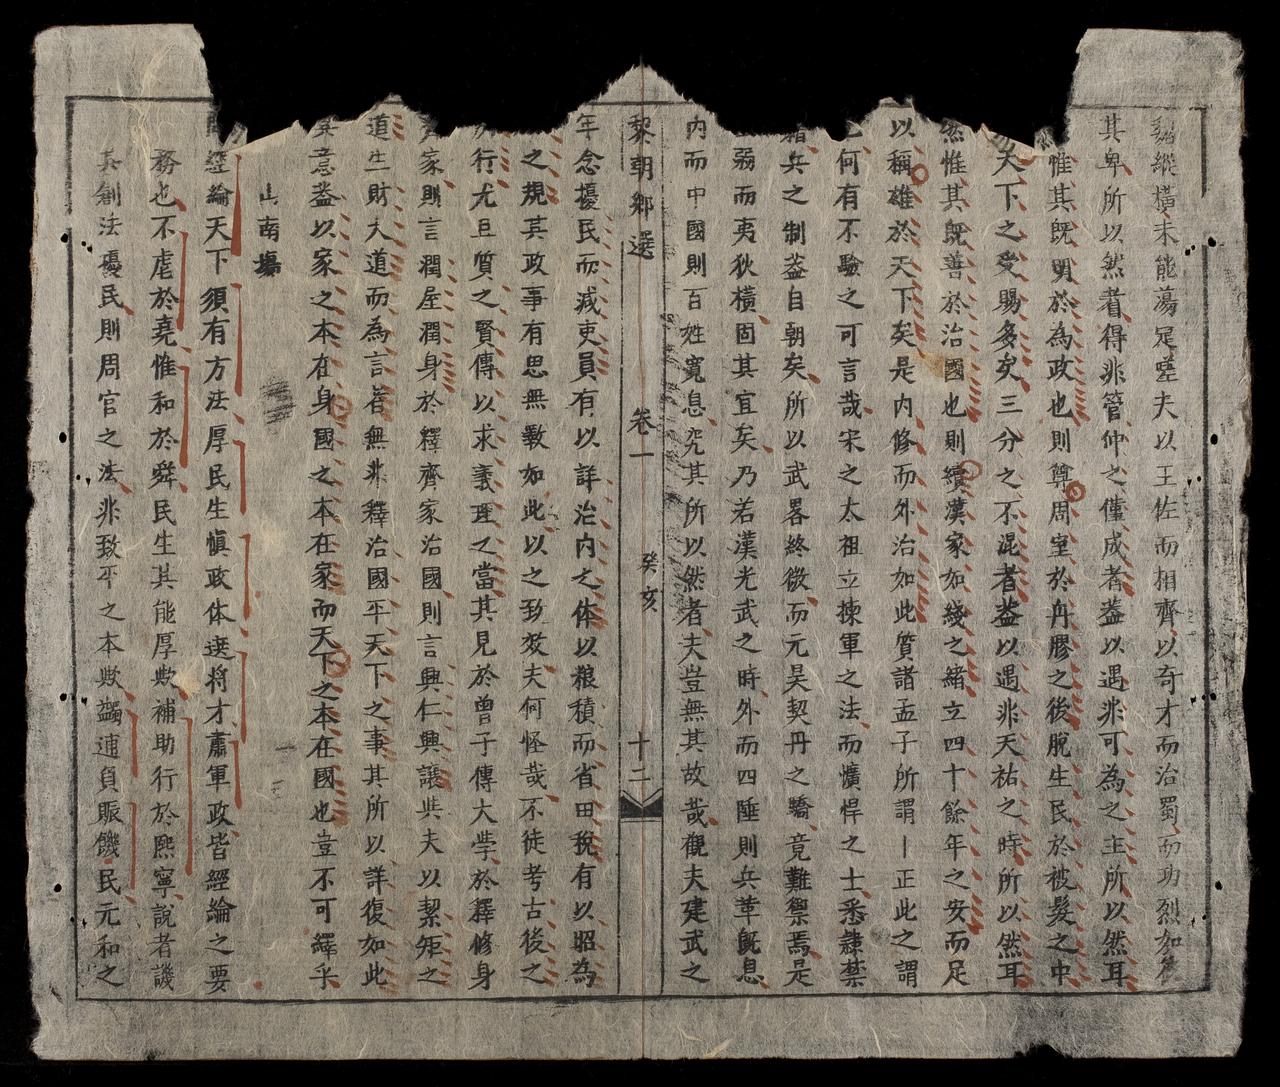 縱橫未能蕩定噫夫以王佐而相齊以奇才而治蜀而功烈如
其卑所以然者得非管仲之僅成者盖以遇非可為之主所以然耳
惟其既明於為政也則尊周室於丹膠之後脫生民於被髮之中
天下之受賜多矣三分之不混者盖以遇非天祐之時所以然耳
然惟其既善於治國也則續漢家如綫之緒立四十餘年之安而足
以稱雄於天下矣是內修而外治如此質諸孟子所謂｜正此之謂
何有不驗之可言哉宋之太祖立揀軍之法而懭悍之士悉隷禁
兵之制盖自朝矣所以武畧終微而元昊契丹之驕竟難禦焉是
弱而夷狄橫固其宜矣乃若漢光武之時外而四陲則兵革既息
內而中國則百姓寬息究其所以然者夫豈無其故哉觀夫建武之
黎朝鄉選 卷一 癸亥 十二
年念擾民而减吏員有以詳治內之体以粮積而省田稅有以昭為
之規其政事有思無斁如此以之致效夫何怪哉不徒考古後之
行尤旦質之賢傳以求義理之當其見於曾子傳大學於釋修身
家則言潤屋潤身於釋齊家治國則言興仁興讓與夫以絜矩之
道生財大道而為言者無非釋治國平天下之事其所以詳復如此
其意盖以家之本在身國之本在家而天下之本在國也豈不可繹乎
山南塲
經綸天下須有方法厚民生愼政体選將才肅軍政皆經綸之要
務也不虐於堯惟和於舜民生其能厚歟補助行於熙寧說者譏
其創法擾民則周官之法非致平之本歟蠲逋負賑饑民元和之